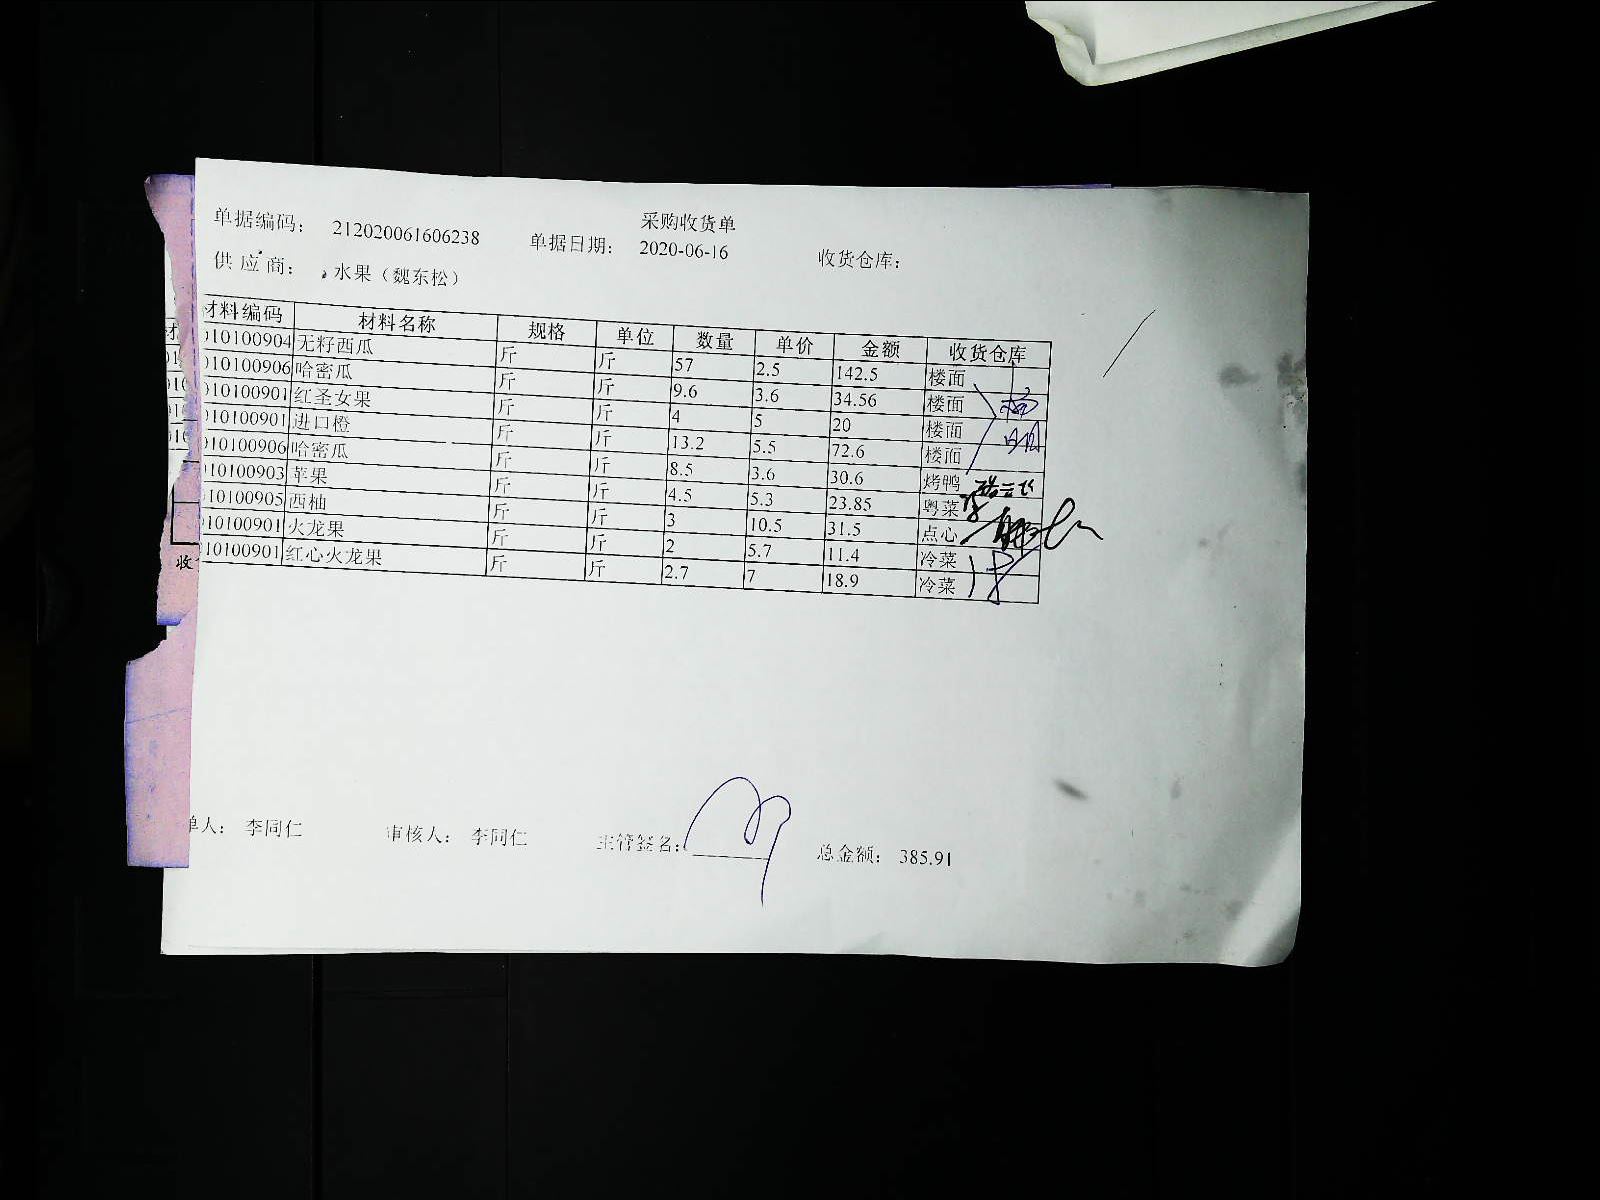 采购收货单
单据编码： 212020061606238 单据日期： 2020-06-16 收货仓库：
供 应 商： 水果（魏东松）
材料编码 材料名称 规格 单位 数量 单价 金额 收货仓库
010100904 无籽西瓜 斤 斤 57 2.5 142.5 楼面
010100906 哈密瓜 斤 斤 9.6 3.6 34.56 楼面
010100901 红圣女果 斤 斤 4 5 20 楼面
010100901 进口橙 斤 斤 13.2 5.5 72.6 楼面
010100906 哈密瓜 斤 斤 8.5 3.6 30.6 烤鸭
010100903 苹果 斤 斤 4.5 5.3 23.85 粤菜
010100905 西柚 斤 斤 3 10.5 31.5 点心
010100901 火龙果 斤 斤 2 5.7 11.4 冷菜
010100901 红心火龙果 斤 斤 2.7 7 18.9 冷菜
单人： 李同仁 审核人： 李同仁 主管签名： 总金额： 385.91